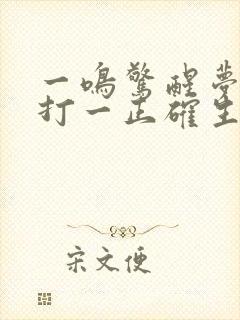 一鸣驚醒夢
打一正確生
宋文便